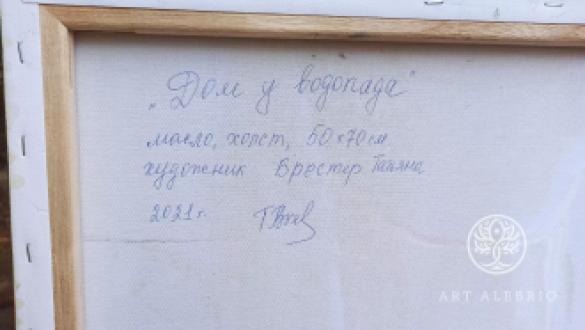 „Дом у водопада"
масло, холст, 50х70см.
художник Брестер Татьяна
2021г.
ART ALEBRIO